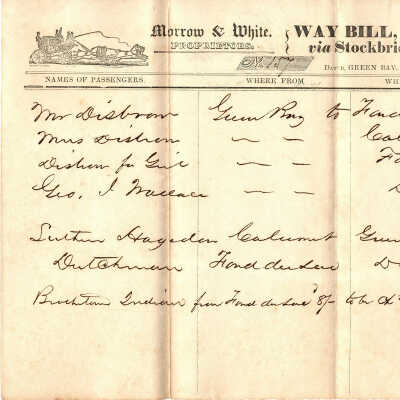 Morrow & White. { WAY BILL,
PROPRIETORS. via Stockbri
No. 157 Day 2, GREEN BAY,
NAMES OF PASSENGERS. WHERE FROM WH
Mr Disbrow Green Bay to Fond
Mrs Disbrow — — Cal
Disbrow for Girl — — Fo
Geo. J Wallace — — D
Luther Hagedon Calumet Green
Dutchman Fond du Lac D
Brothertown Indian from Fond du Lac 8/- to be